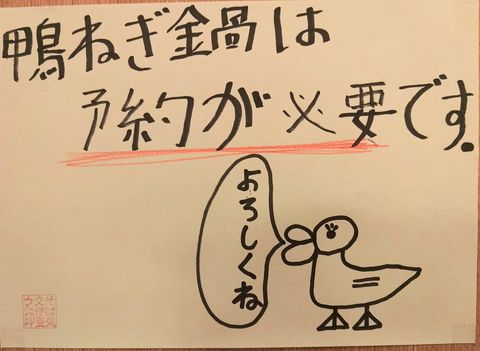 鴨ねぎ鍋は
予約が必要です.
よろしくね
そば処